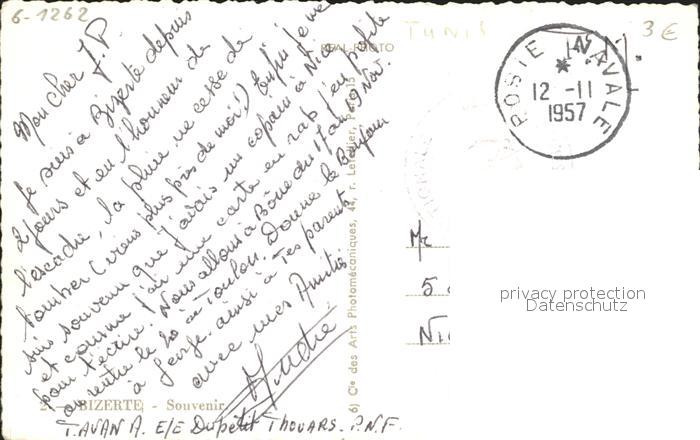 6-1262
TUNIS
3€
REAL-PHOTO
POSTE NAVALE
12 -11
1957
Mon cher J.P.
Je suis à Bizerte depuis
2 jours et en l'honneur de
l'escadre, la pluie ne cesse de
tomber (viens plus près de moi!)
suis souvenu que j'avais un copain à Nice
et comme j'ai une carte en rab j'en profite
pour t'écrire. Nous allons à Bône du 17 au 19 Nov.
on rentre le 20 à Toulon. Donne le Bonjour
à ainsi à tes parents
avec mes Amitiés
André
6) Cie des Arts Photomécaniques, 44, r. Letellier, Paris 15
Mr
5
Ni
privacy protection
Datenschutz
2 - BIZERTE - Souvenir
TAVAN A. E/E Dupetit Thouars. P.N.F.